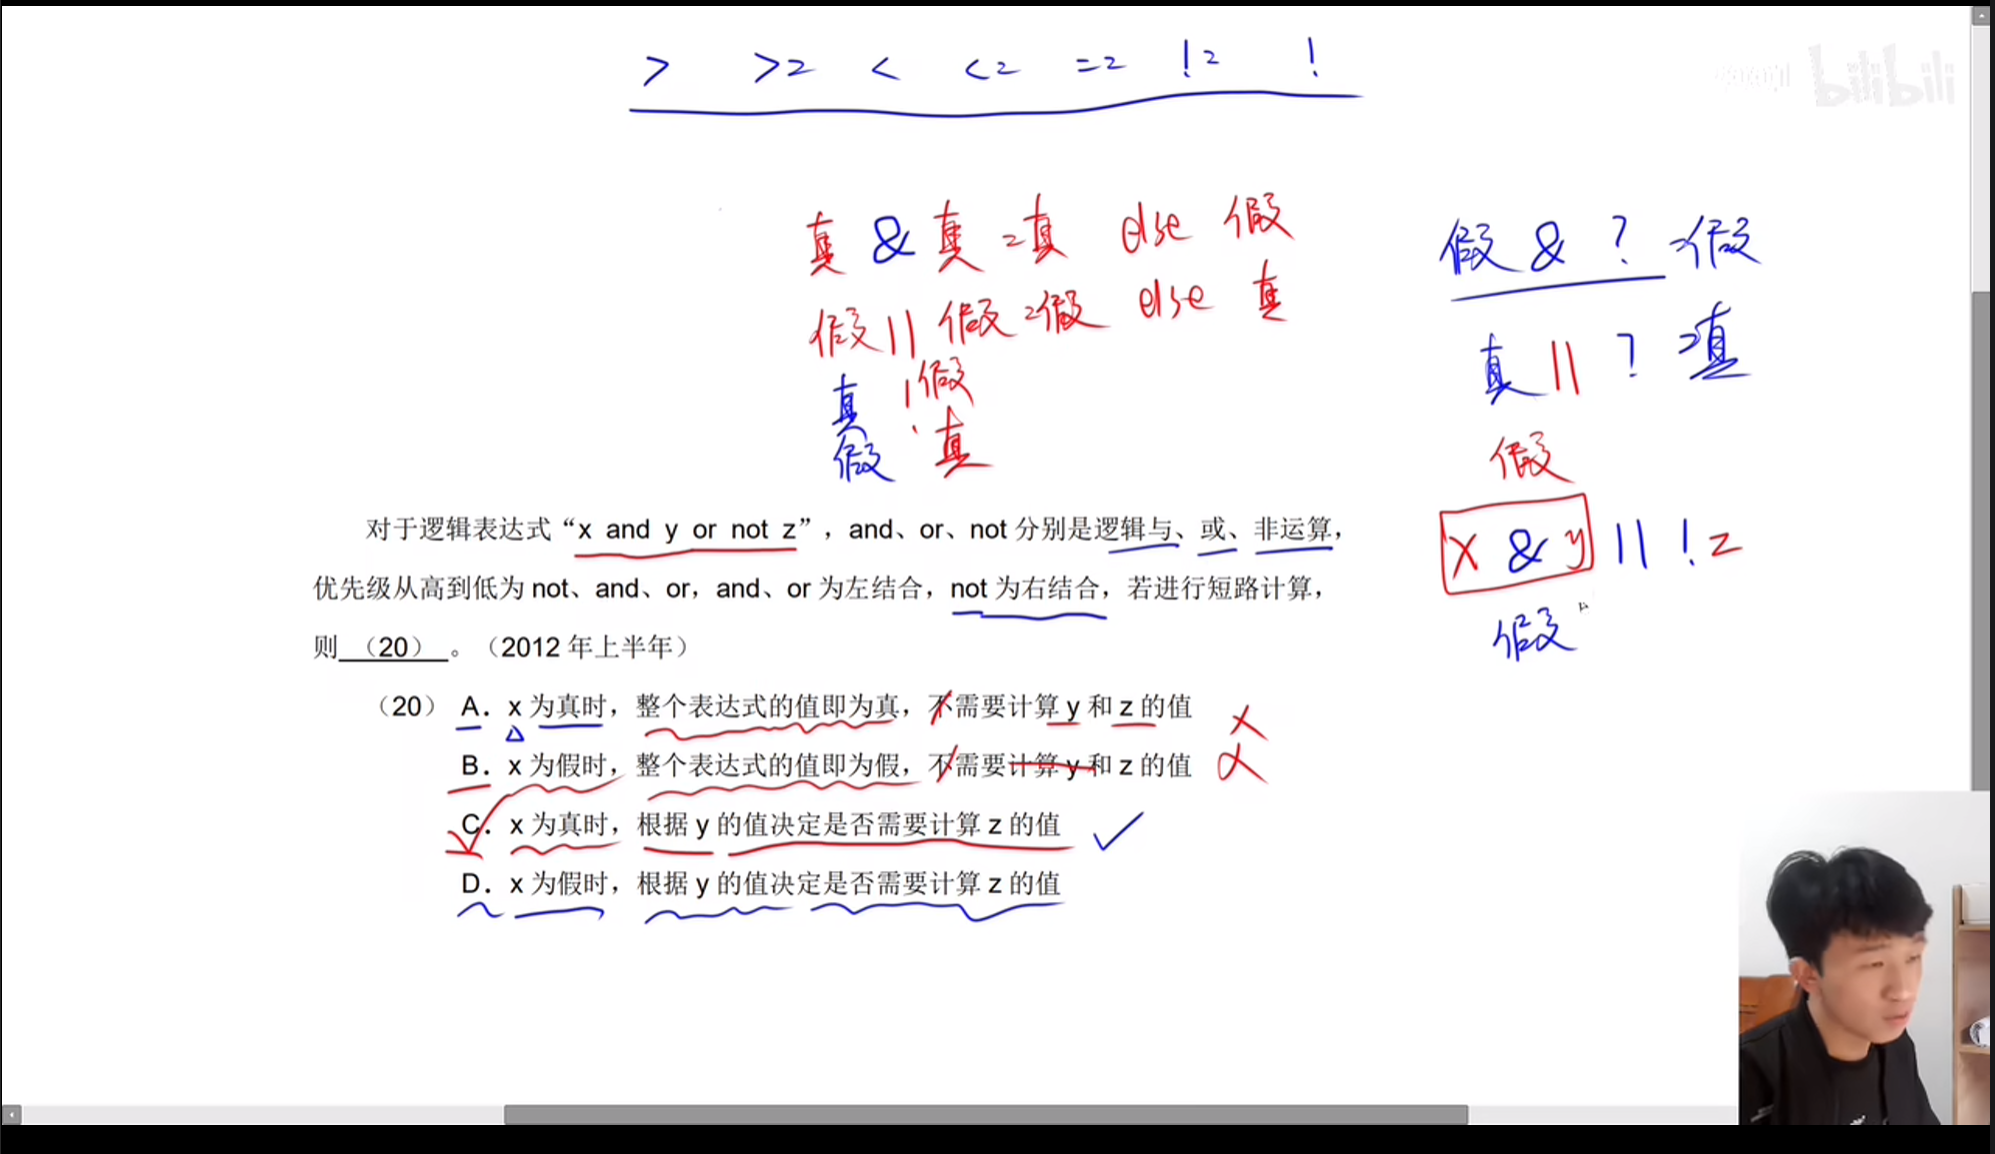 > >= < <= == != !
bilibili
真 & 真 = 真 else 假
假 || 假 = 假 else 真
真 ! 假
假 ! 真
假 & ? = 假
真 || ? = 真
假
x & y || ! z
假
对于逻辑表达式“x and y or not z”，and、or、not 分别是逻辑与、或、非运算，
优先级从高到低为 not、and、or，and、or 为左结合，not 为右结合，若进行短路计算，
则 （20） 。（2012 年上半年）
（20） A．x 为真时，整个表达式的值即为真，不需要计算 y 和 z 的值
B．x 为假时，整个表达式的值即为假，不需要计算 y 和 z 的值
C．x 为真时，根据 y 的值决定是否需要计算 z 的值
D．x 为假时，根据 y 的值决定是否需要计算 z 的值